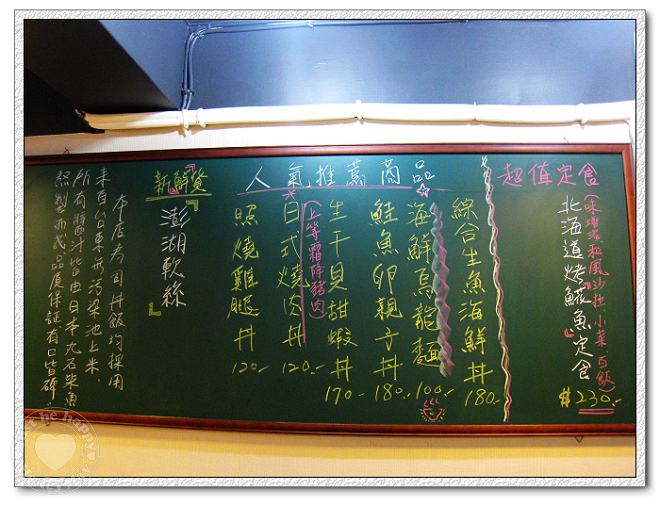 超值定食
北海道烤鯱魚定食
$230.-
人氣推薦商品
綜合生魚海鮮丼
180.-
海鮮烏龍麵
100.-
鮭魚卵親子丼
180.-
生干貝甜蝦丼
170.-
日式燒肉丼
(上等霜降豬肉)
120.-
照燒雞腿丼
120.-
新鮮貨
『澎湖軟絲』
本店壽司丼飯均採用
來自台東無污染池上米,
所有醬汁皆由日本丸石柴魚
熬製而成品質保証有口皆碑
be happy